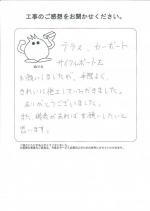 工事のご感想をお聞かせください。
テラス、カーポート
サイクルポートを
お願いしましたが、手際よく、
きれいに施工していただきました。
ありがとうございました。
また、機会があればお願いしたいと
思います。